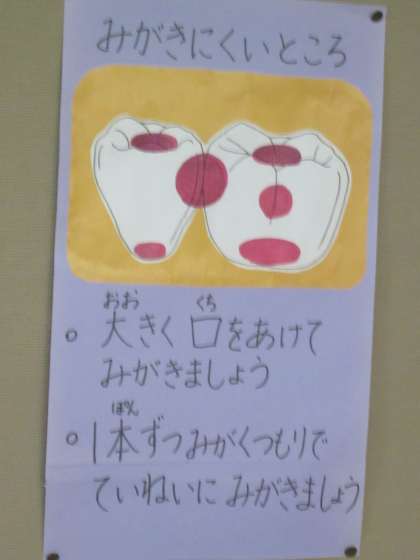 みがきにくいところ
おお くち
○ 大きく 口をあけて
みがきましょう
ぽん
○ 1本ずつみがくつもりで
ていねいに みがきましょう